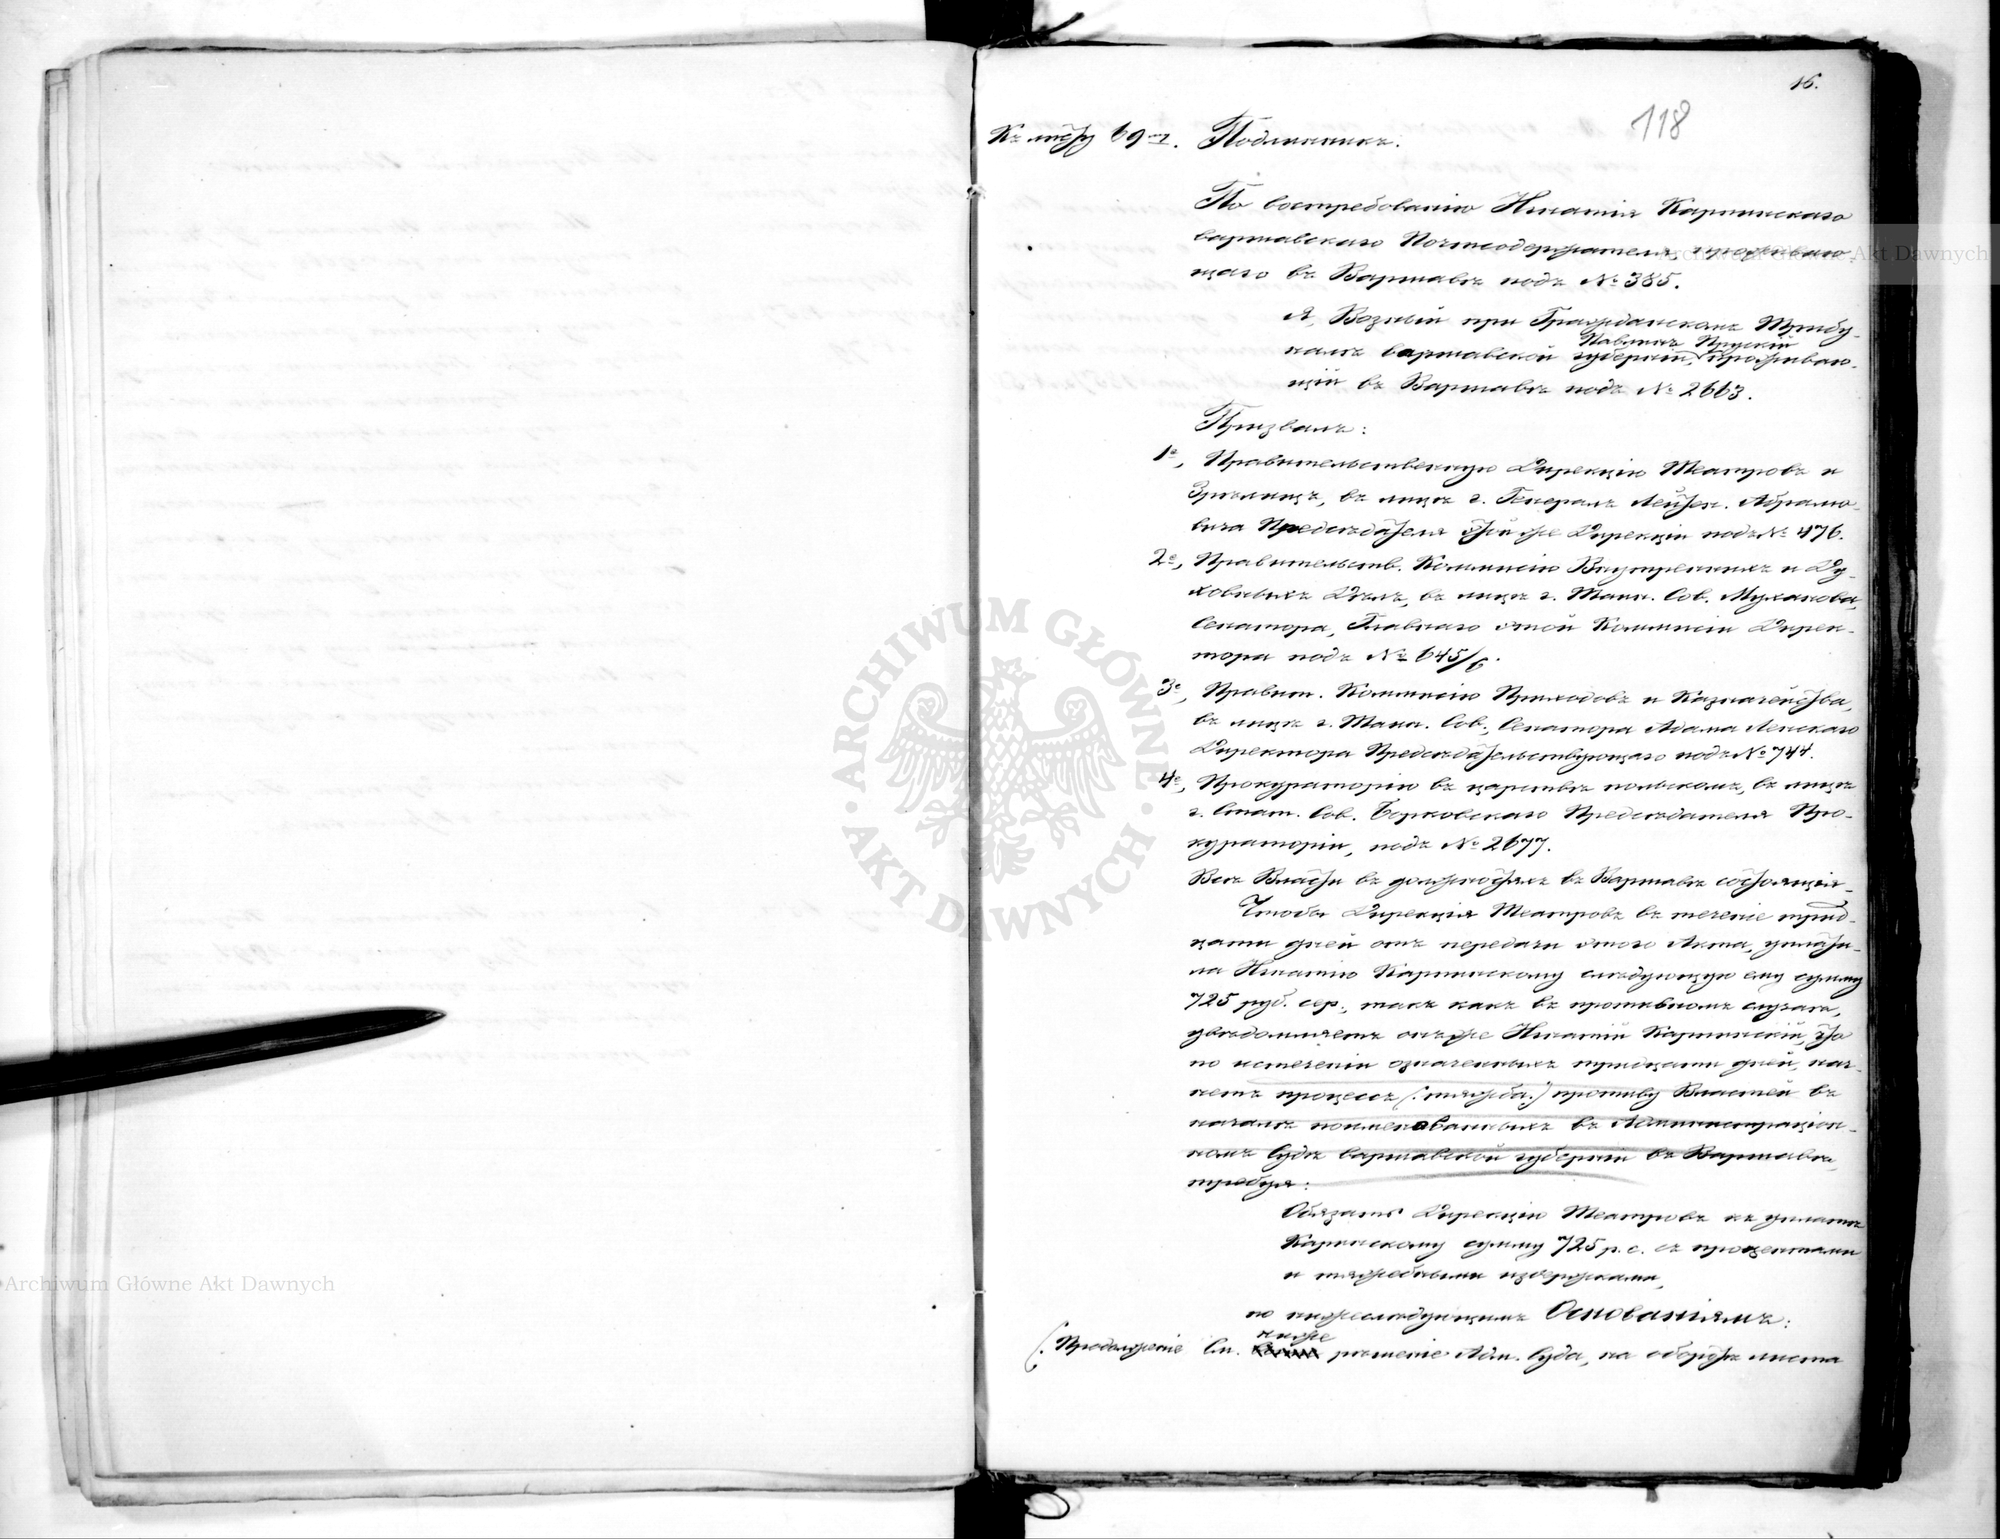 16.
118
Къ листу 69му. Подлинникъ.
По востребованію Игнатія Карпинскаго
варшавскаго Почтсодержателя, проживаю-
щаго въ Варшавѣ подъ № 385.
Я, Возный при Гражданскомъ Трибу-
Павелъ Прускій
налѣ варшавской губерніи, проживаю-
щій въ Варшавѣ подъ № 2663.
Призвалъ:
1е, Правительственную Дирекцію Театровъ и
Зрѣлищъ, въ лицѣ г. Генералъ Лейтен. Абрамо-
вича Предсѣдателя этой же Дирекціи подъ № 476.
2е, Правительств. Коммисію Внутреннихъ и Ду-
ховныхъ Дѣлъ, въ лицѣ г. Тайн. Сов. Муханова,
Сенатора, Главнаго этой Коммисіи Дирек-
тора подъ № 645/6.
3е, Правит. Коммисію Приходовъ и Казначейства,
въ лицѣ г. Тайн. Сов., Сенатора Адама Ленскаго
Директора Предсѣдательствующаго подъ № 744.
4е, Прокураторію въ царствѣ польскомъ, въ лицѣ
г. Стат. Сов. Борковскаго Предсѣдателя Про-
кураторіи, подъ № 2677.
Всѣ Власти въ должностяхъ въ Варшавѣ состоящія-
Чтобы Дирекція Театровъ въ теченіе трид-
цати дней отъ передачи этого Акта, уплати-
ла Игнатію Карпинскому слѣдующую ему сумму
725 руб. сер., такъ какъ въ противномъ случаѣ,
увѣдомляетъ онъ же Игнатій Карпинскій, что
по истеченіи означенныхъ тридцати дней, нач-
нетъ процессъ (: тяжба :) противу Властей въ
началѣ поименованныхъ въ Администраціон-
номъ Судѣ варшавской губерніи въ Варшавѣ,
требуя:
Обязать Дирекцію Театровъ къ уплатѣ
Карпинскому сумму 725 р. с. съ процентами
и тяжебными издержками,
по нижеслѣдующимъ Основаніямъ:
ниже
(: Продолженіе См. рѣшеніе Адм. Суда, на оборотѣ листа
Archiwum Główne Akt Dawnych
Archiwum Główne Akt Dawnych
ARCHIWUM GŁÓWNE · AKT DAWNYCH ·